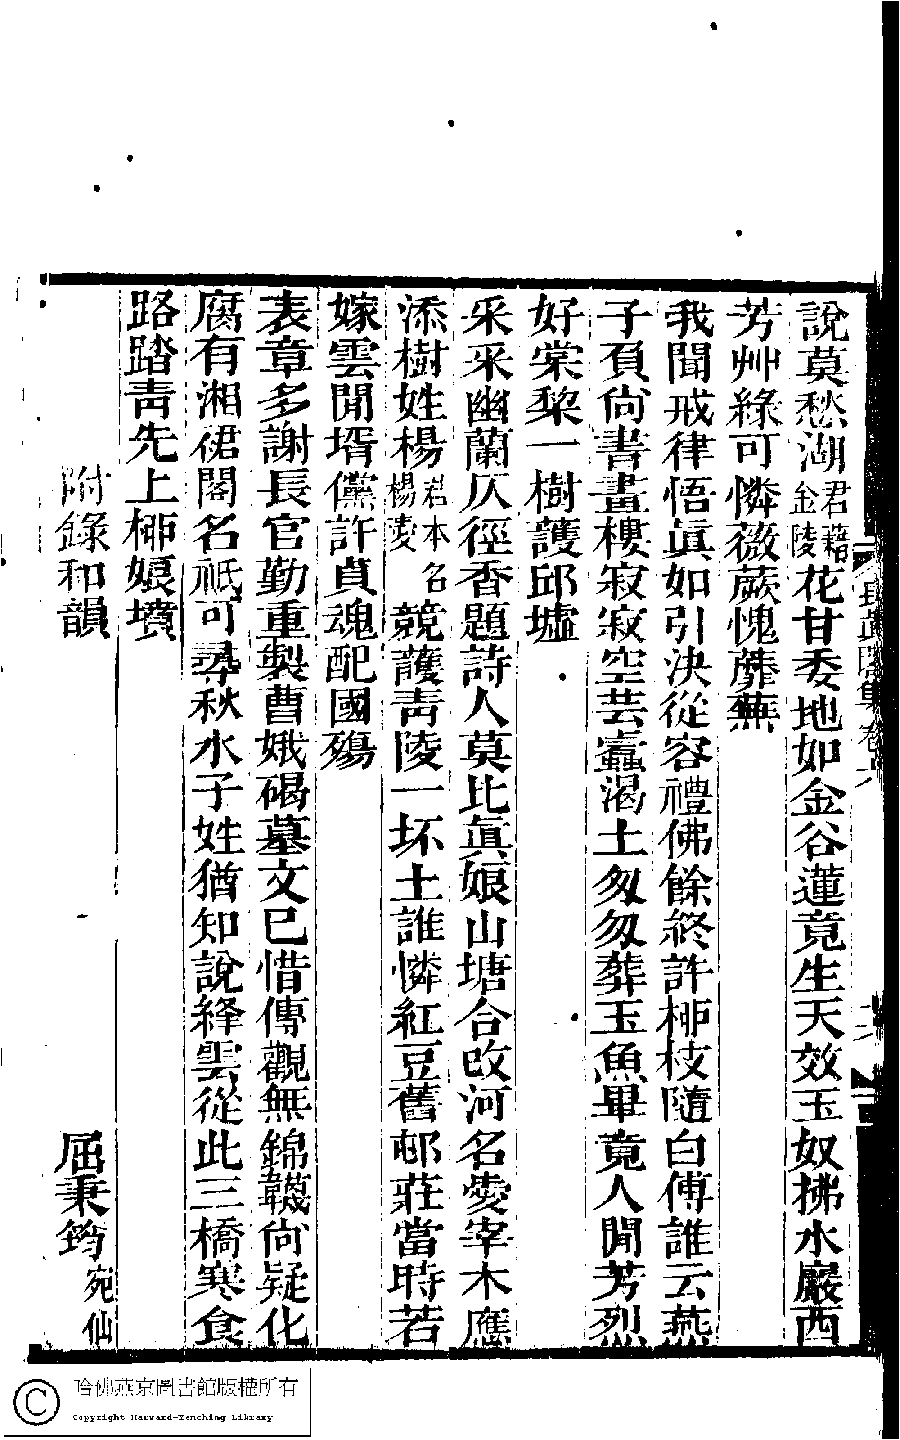 說莫愁湖君藉金陵花甘委地如金谷蓮竟生天效玉奴拂水巖西
芳艸綠可憐薇蕨愧蘼蕪
我聞戒律悟眞如引決從容禮佛餘終許桺枝隨白傅誰云燕
子負尙書畫樓寂寂空芸蠧渴土匆匆葬玉魚畢竟人閒芳烈
好棠棃一樹護邱墟
采采幽蘭仄徑香題詩人莫比眞娘山塘合改河名愛宰木應
添樹姓楊君本名楊爱競護靑陵一坏土誰憐紅豆舊邨莊當時若
嫁雲閒壻儻許貞魂配國殤
表章多謝長官勤重製曹娥碣墓文已惜傳觀無錦韈尙疑化
腐有湘裙閣名祇可尋秋水子姓猶知說絳雲從此三橋寒食
路踏靑先上桺娘墳
附錄和韻
屈秉筠宛仙
長眞閣集 卷六
哈佛燕京圖書館版權所有
Copyright Harvard-Yenching Library